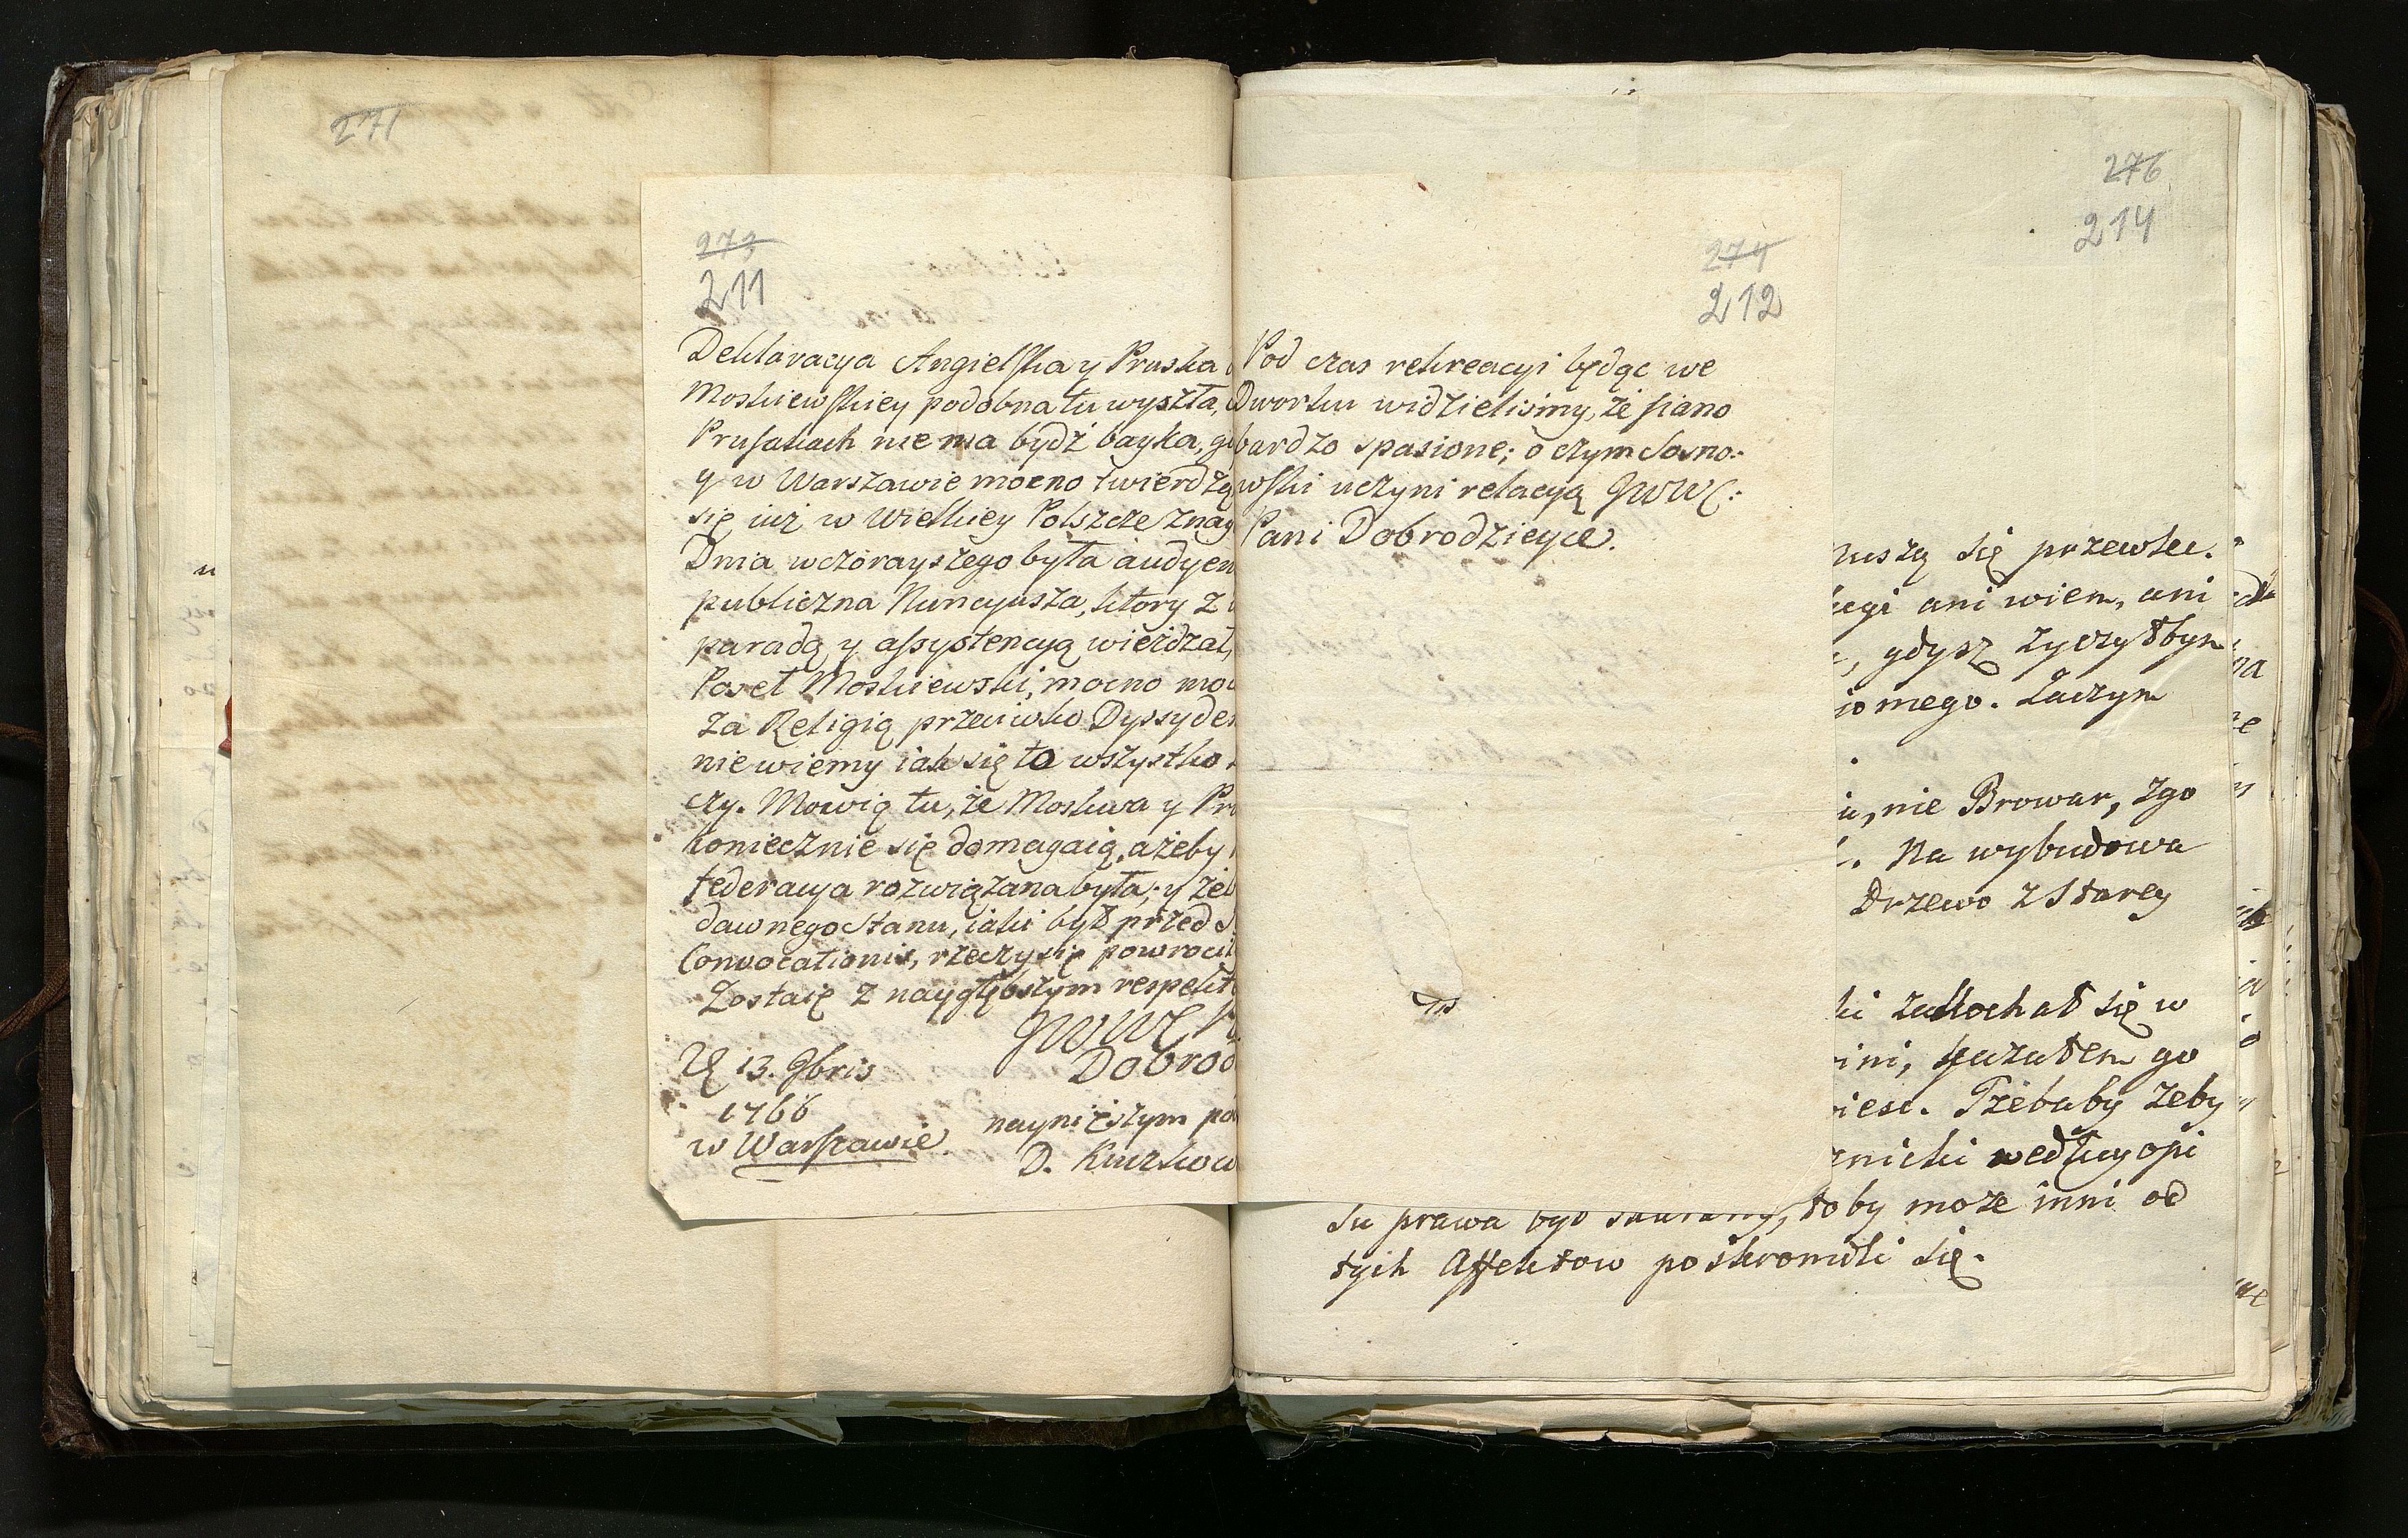 271
273
211
Deklaracya Angielska y Pruska
Moskiewskiey podobna tu wyszła,
Prusakach nie ma bydź bayka,
y w Warszawie mocno twierdzą
się iuż w Wielkiey Polszcze znay
Dnia wczorayszego była audyen
publiczna Nuncyusza, ktory z
paradą y assystencyą wieżdzał,
Poseł Moskiewski, mocno mo
za Religią przeciwko Dyssyden
nie wiemy iak się to wszystko
czy. Mowią tu, że Moskwa y Pr
koniecznie się domagaią, ażeby
federacya rozwiązana była; y żeb
dawnego stanu, iaki był przed
Convocationis, rzeczy się powroci
Zostaię z naygłębszym respekt
JWWC
Dobrod
D 13. 9bris
1766
w Warszawie.
nayniższym po
D. Kuczkow
274
212
Pod czas rekreacyi będąc we
Dworku widzielismy, że siano
bardzo spasione; o czym Sosno-
wski uczyni relacyą JWWC:
Pani Dobrodzieyce.
276
214
muszą się przewlec.
ani wiem, ani
, gdysz życzyłbym
iomego. Zaczym
u, nie Browar, zgo
. Na wybudowa
Drzewo z Starey
ki zakochał się w
ini, kazałem go
iesc. Trzebaby żeby
znicki według opi
su prawa był, toby może inni od
tych Affektow poskromili się.